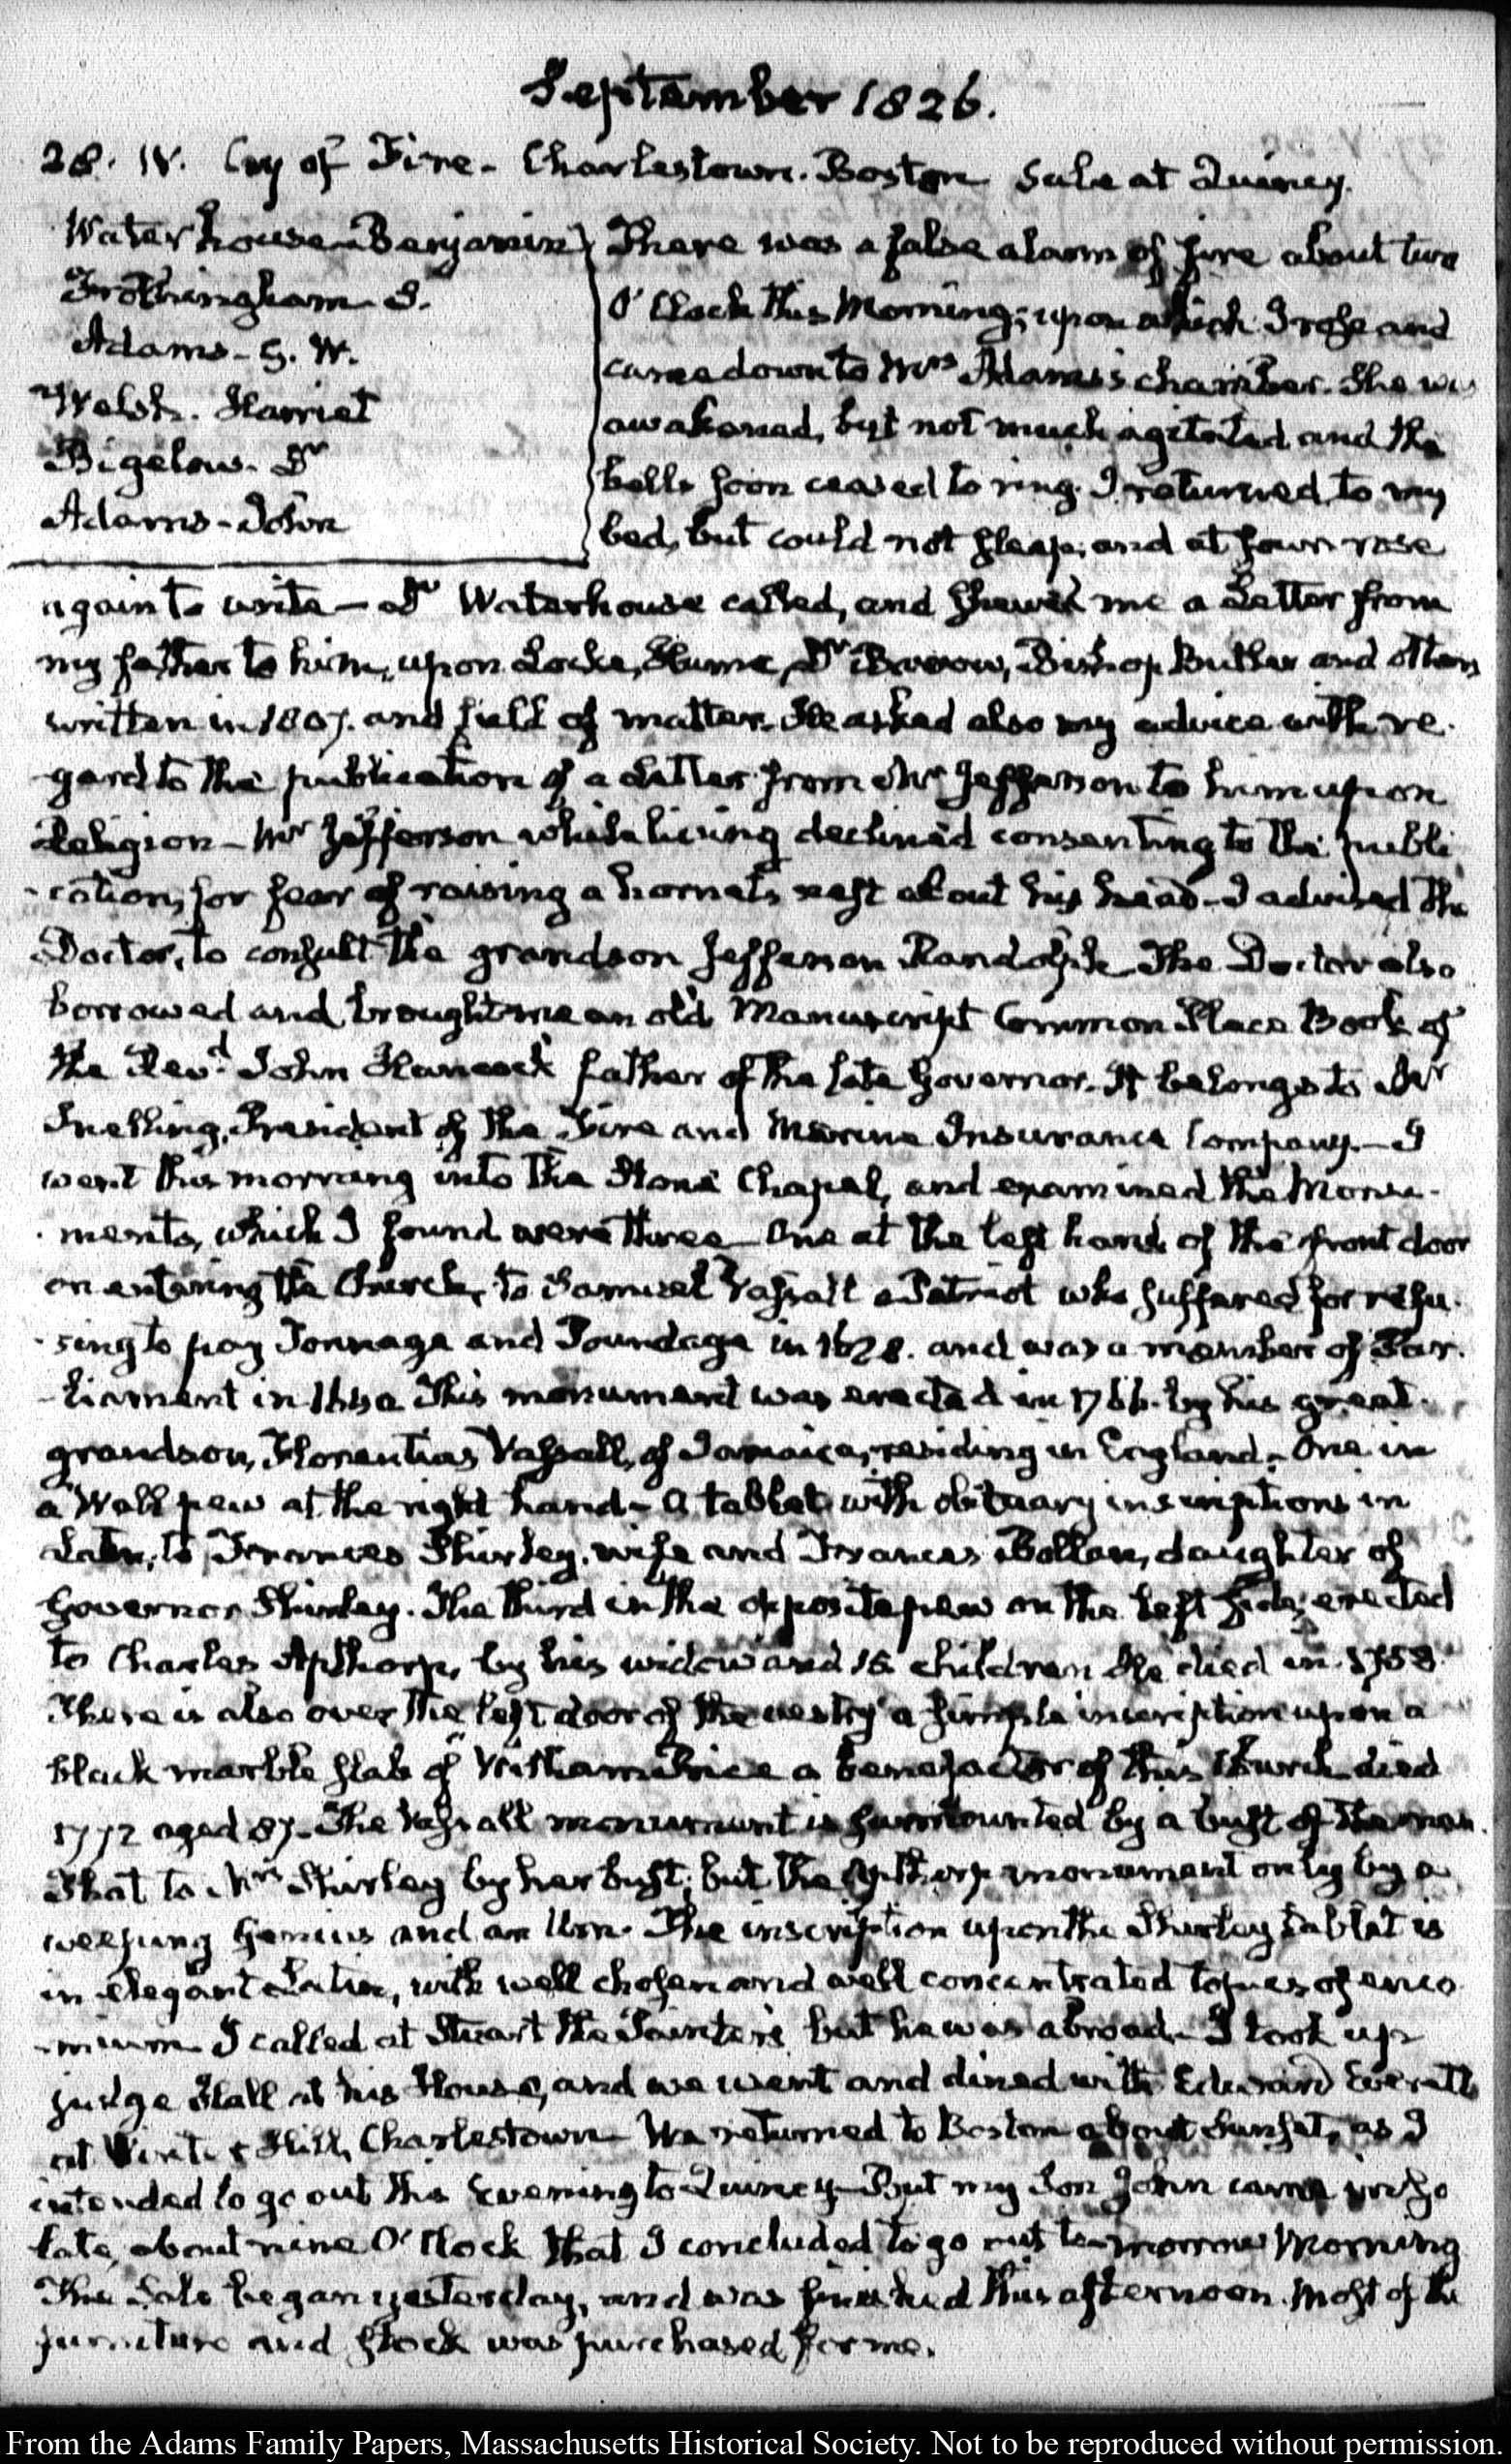 September 1826.
28. IV. Cry of Fire - Charlestown. Boston Sale at Quincy.
Waterhouse - Benjamin
Frothingham - I.
Adams - G. W.
Welsh. Harriet
Bigelow. Dr
Adams - John
There was a false alarm of fire about two
O'Clock this Morning; upon which I rose and
came down to Mrs Adams's chamber. She was
awakened, but not much agitated and the
bells soon ceased to ring. I returned to my
bed, but could not sleep; and at four rose
again to write — Dr Waterhouse called, and shewed me a Letter from
my father to him, upon Locke, Hume, Dr Brown, Bishop Butler and others
written in 1807. and full of matter. He asked also my advice with re-
gard to the publication of a Letter from Mr Jefferson to him upon
Religion — Mr Jefferson while living declined consenting to the publi
-cation, for fear of raising a hornets nest about his head - I advised the
Doctor, to consult the grandson Jefferson Randolph. The Doctor also
borrowed and brought me an old Manuscript Common Place Book of
the Revd John Hancock father of the late Governor. It belongs to Mr
Snelling, President of the Fire and Marine Insurance Company. — I
went this morning into the Stone Chapel, and examined the Monu-
-ments, which I found were three — One at the left hand of the front door
on entering the Church, to Samuel Vassall a Patriot who suffered for refu-
-sing to pay Tonnage and Poundage in 1628. and was a member of Par-
-liament in 1640 This monument was erected in 1766. by his great-
grandson, Florentius Vassall, of Jamaica, residing in England. One in
a Wall pew at the right hand - a tablet with obituary inscriptions in
Latin, to Frances Shirley, wife and Frances Bollan, daughter of
Governor Shirley. The third in the opposite pew on the left side, erected
to Charles Apthorp, by his widow and 15 children He died in 1758.
There is also over the left door of the vestry a simple inscription upon a
black marble slab of William Price a benefactor of this Church died
1772 aged 87. The Vassall monument is surmounted by a bust of the man.
That to Mrs Shirley by her bust; but the Apthorp monument only by a
weeping Genius and an Urn. The inscription upon the Shirley tablet is
in elegant Latin, with well chosen and well concentrated topics of enco-
-mium. I called at Stuart the Painter's but he was abroad. I took up
judge Hall at his House, and we went and dined with Edward Everett
at Winter Hill, Charlestown We returned to Boston about Sunset, as I
intended to go out this Evening to Quincy - But my Son John came in so
late, about nine O'Clock that I concluded to go out to-morrow Morning
The Sale began yesterday, and was finished this afternoon. Most of the
furniture and stock was purchased for me.
From the Adams Family Papers, Massachusetts Historical Society. Not to be reproduced without permission.